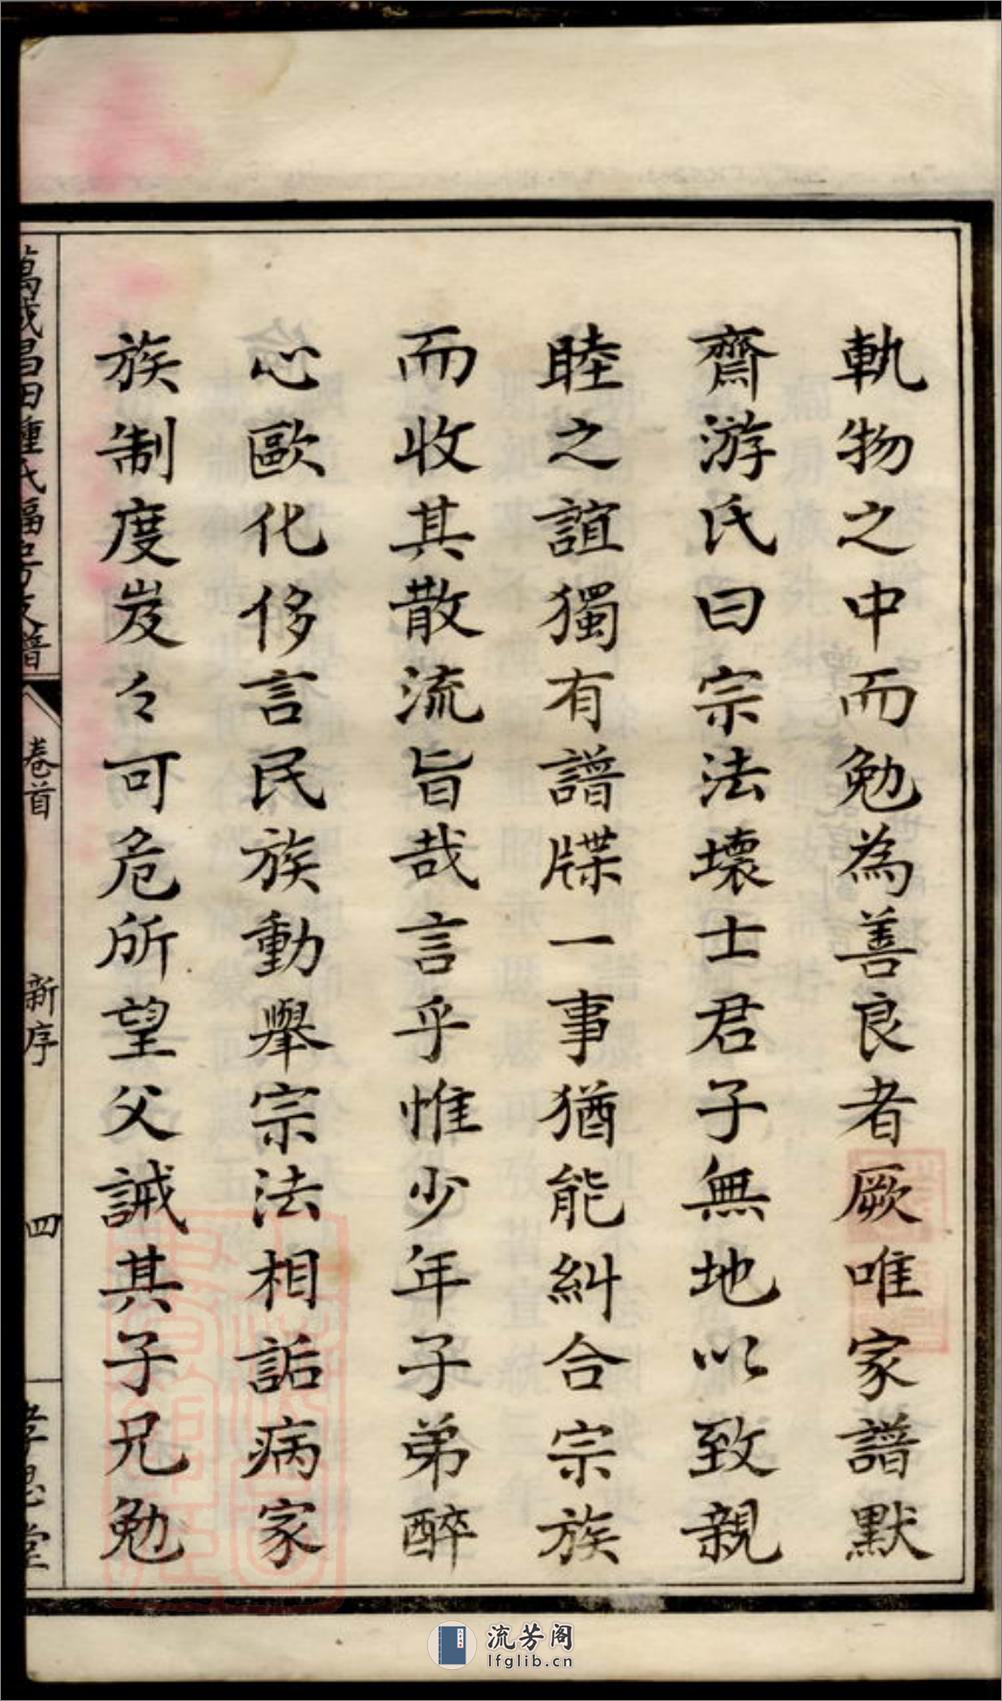 軌物之中而勉為善良者厥唯家譜默
齋游氏曰宗法壞士君子無地以致親
睦之誼獨有譜牒一事猶能糾合宗族
而收其散流旨哉言乎惟少年子弟醉
心歐化侈言民族動舉宗法相詬病家
族制度岌々可危所望父誡其子兄勉
萬載昌田鍾氏福号支譜
卷首
新序
四
孝思堂
流芳阁
lfglib.cn